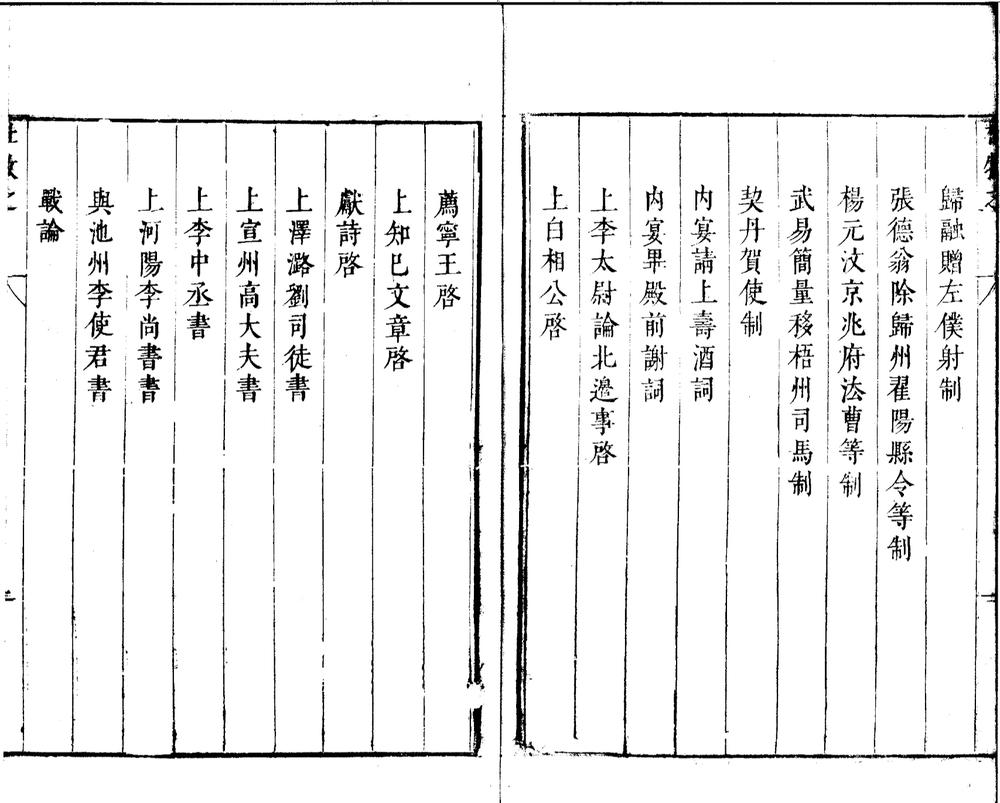 歸融贈左僕射制
張德翁除歸州秭陽縣令等制
楊元汶京兆府法曹等制
武易簡量移梧州司馬制
契丹賀使制
内宴請上壽酒詞
内宴畢殿前謝詞
上李太尉論北邊事啓
上白相公啓
薦寧王啓
上知已文章啓
獻詩啓
上澤潞劉司徒書
上宣州高大夫書
上李中丞書
上河陽李尚書書
與池州李使君書
戰論